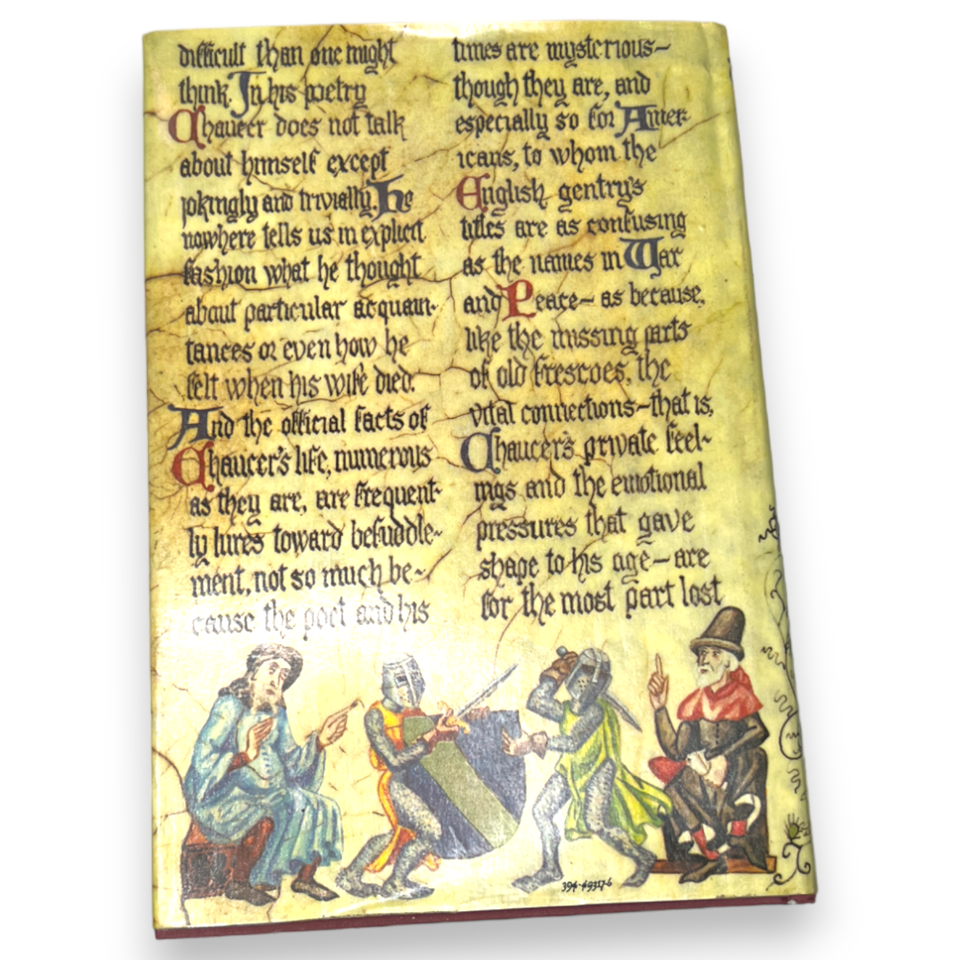 difficult than one might
think. In his poetry
Chaucer does not talk
about himself except
jokingly and trivially. He
nowhere tells us in explicit
fashion what he thought
about particular acquain-
tances or even how he
felt when his wife died.
And the official facts of
Chaucer's life, numerous
as they are, are frequent-
ly lures toward befuddle-
ment, not so much be-
cause the poet and his
times are mysterious—
though they are, and
especially so for Amer-
icans, to whom the
English gentry's
titles are as confusing
as the names in War
and Peace— as because,
like the missing parts
of old frescoes, the
vital connections—that is,
Chaucer's private feel-
ings and the emotional
pressures that gave
shape to his age—are
for the most part lost
394-49317-6